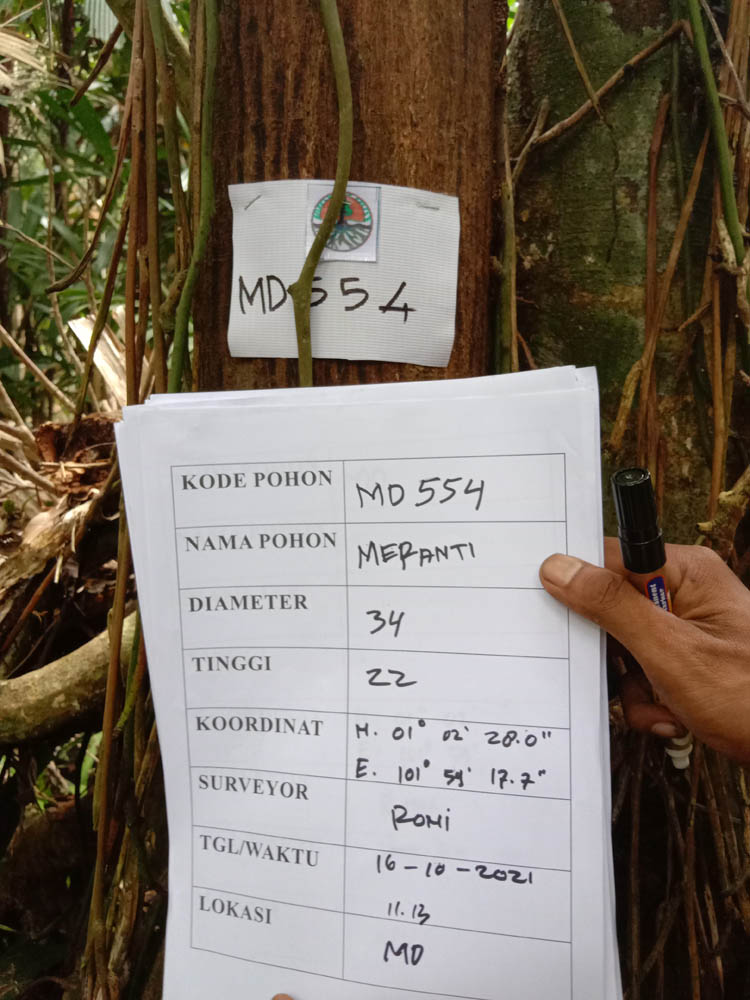 MD 554
KODE POHON MD 554
NAMA POHON MERANTI
DIAMETER 34
TINGGI 22
KOORDINAT N. 01° 02' 28.0"
E. 101° 59' 17.7"
SURVEYOR ROMI
TGL/WAKTU 16-10-2021
11.13
LOKASI MD